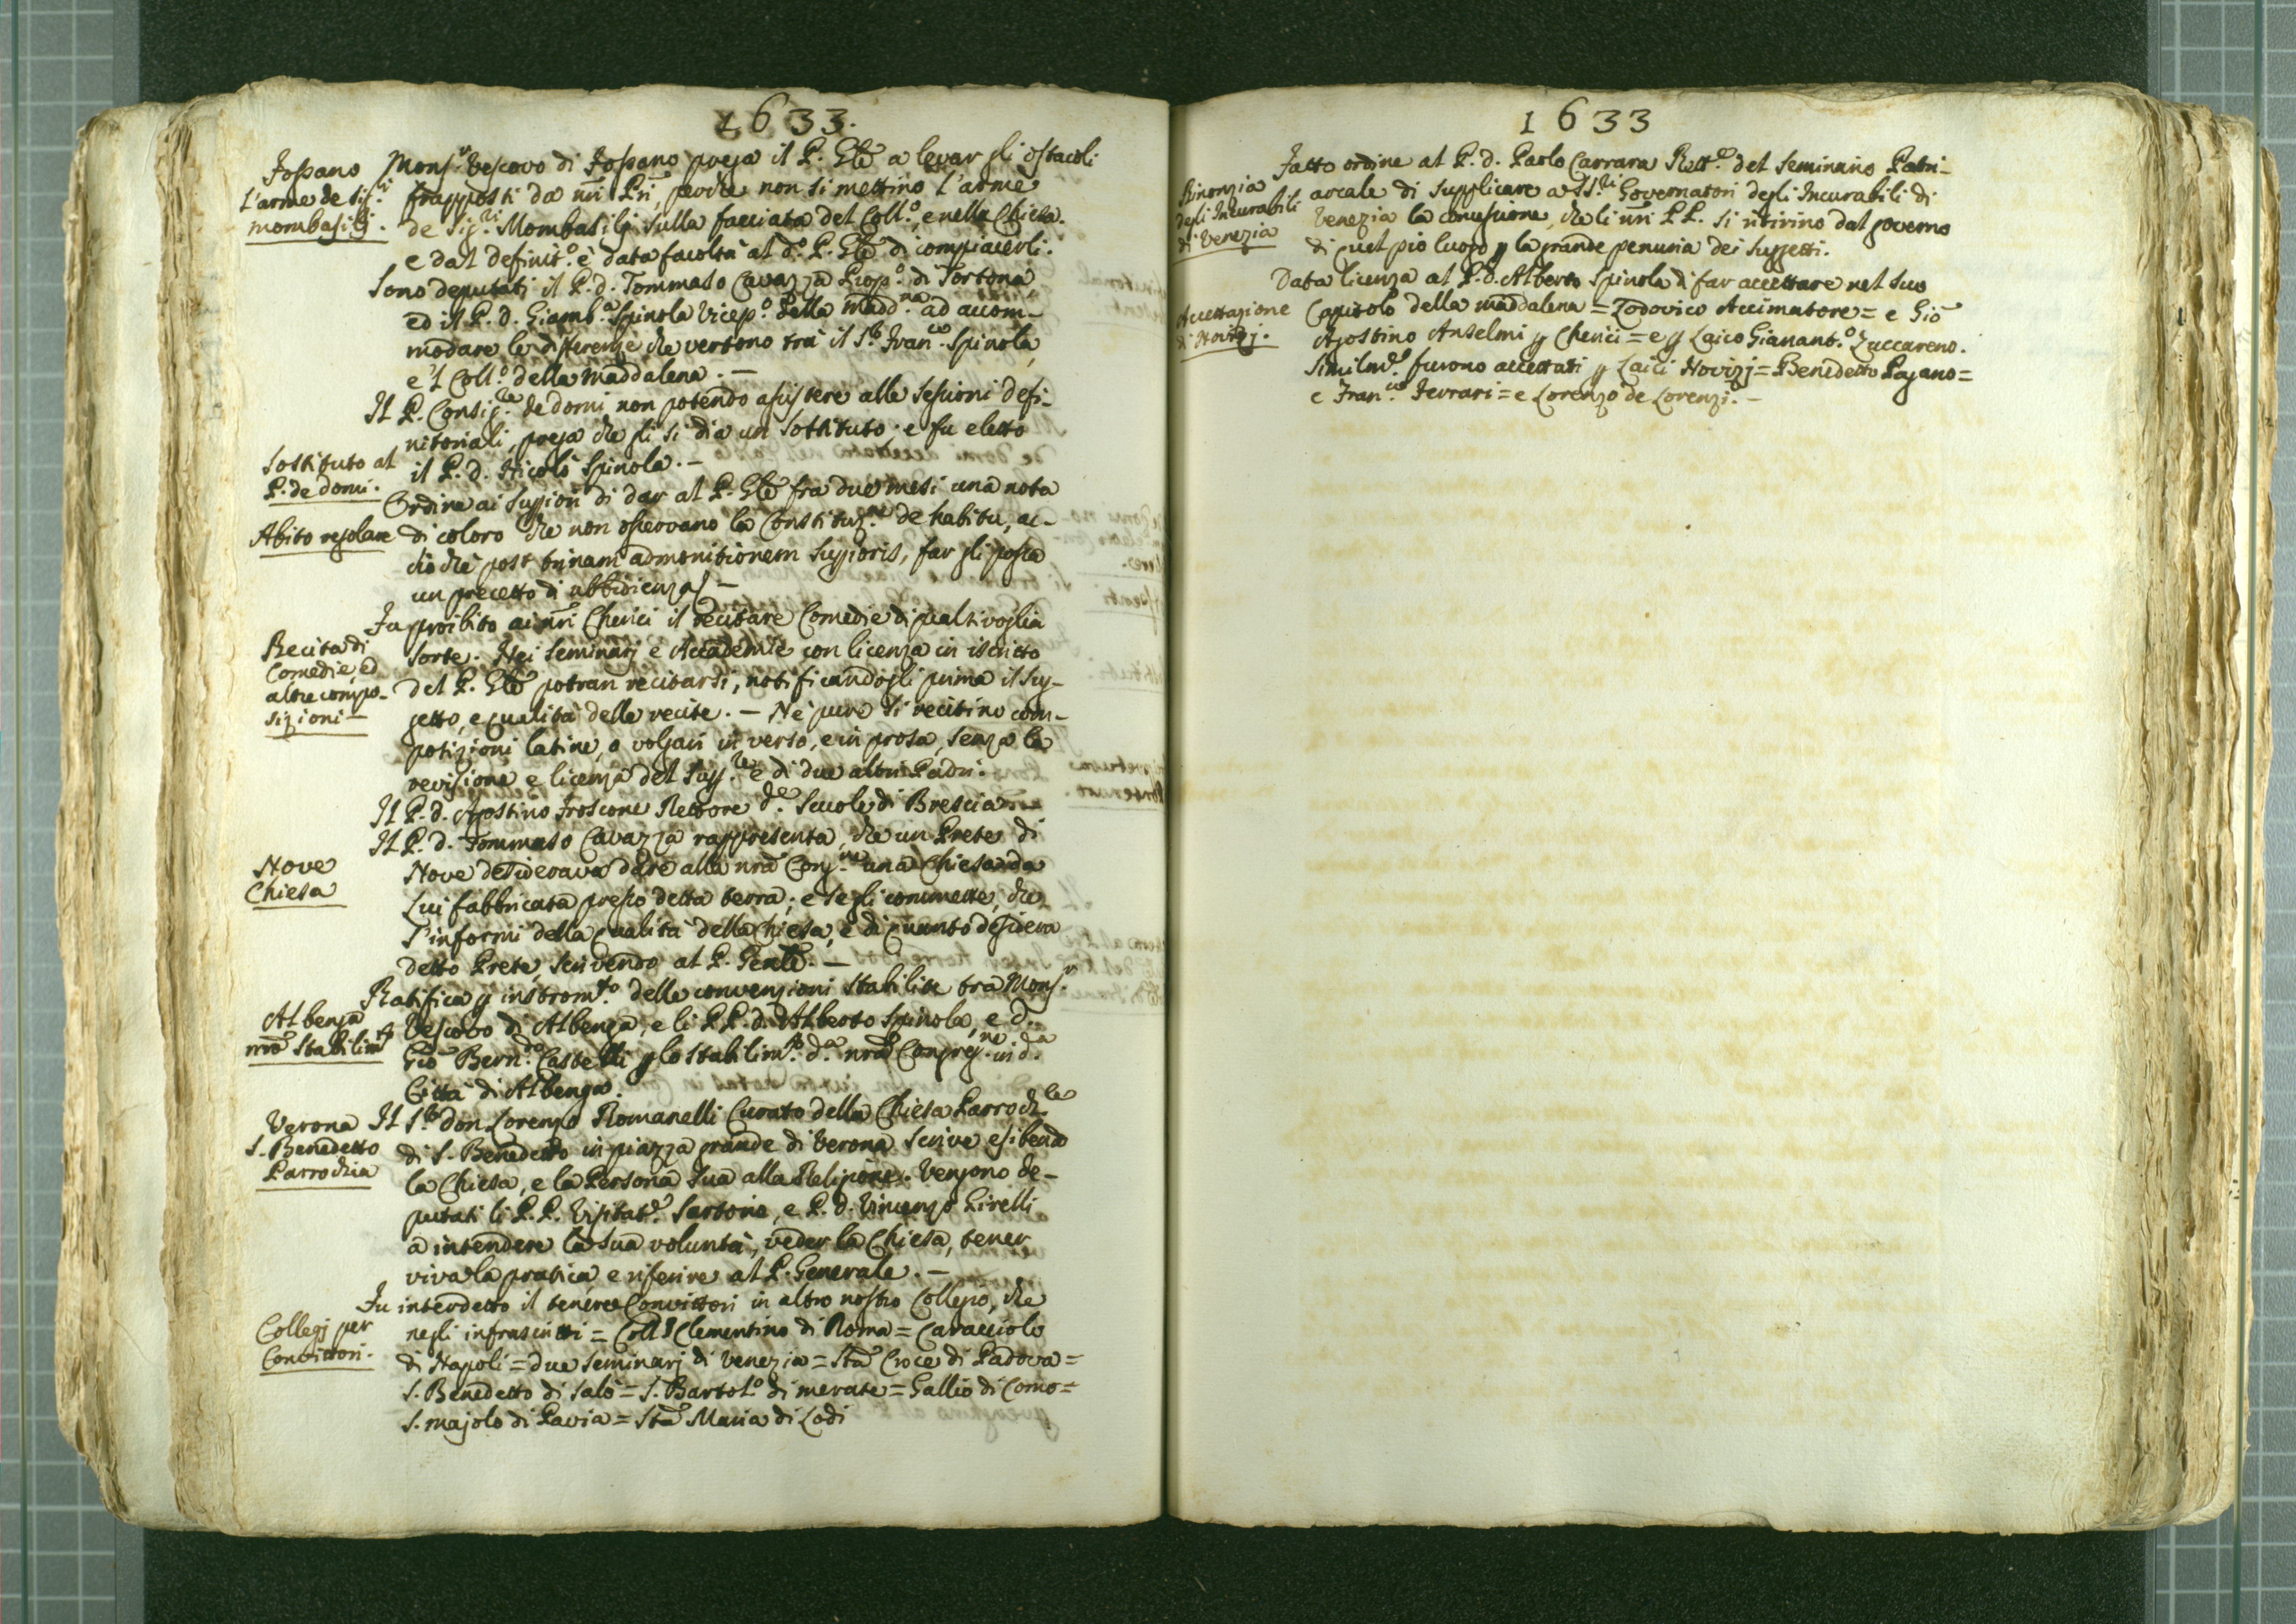 1633.
Fossano
L'arme de Sig.ri
Mombasilj.
Mons.r Vescovo di Fossano prega il P. Gñle a levar gli ostacoli
frapposti da ñri Pri, perche non si mettino l'arme
de Sig.ri Mombasilj sulla facciata del Coll.o, e nella Chiesa.
e dal definit.o è data facoltà al d.o P. Gñle di compiacerli.
Sono deputati il P. d. Tommaso Cavazza Prep.o di Tortona,
ed il P. d. Giamb.a Spinola Vicep.o della Madd.na ad accom-
modare le differenze che vertono trà il S.r Fran.co Spinola,
e 'l Coll.o della Maddalena. —
Il P. Consig.re de domi non potendo assistere alle sessioni defi-
nitoriali, prega che gli si dia un sostituto. e fu eletto
Sostituto al
P. de domi.
il P. d. Nicolò Spinola. —
Ordine ai Suppiori di dar al P. Gñle fra due mesi una nota
Abito regolare
di coloro che non osservano la Constituz.ne de habitu, ac-
ciò che post trinam admonitionem Suppioris, far gli possa
un precetto di ubbidienza. —
Fu proibito ai ñri Cherici il recitare Comedie di qualsivoglia
Recita di
Comedie, ed
altre compo-
sizioni —
sorte. Nei Seminarj e Accademie con licenza in iscritto
del P. Gñle potran recitarsi, notificandogli prima il Sug-
getto, e qualità delle recite. — Nè pure si recitino com-
posizioni latine, o volgari in verso, e in prosa, senza la
revisione e licenza del Supp.re e di due altri Padri.
Il P. d. Agostino Froscone Rettore d.e Scuole di Brescia —
Il P. d. Tommaso Cavazza rappresenta, che un Prete di
Nove
Chiesa
Nove desiderava dare alla nrã Cong.ne una Chiesa da
Lui fabbricata presso detta terra; e se gli commette, che
s'informi della qualità della Chiesa, e di quanto desidera
detto Prete, scrivendo al P. Genle. —
Ratifica p instrom.to delle convenzioni stabilite tra Mons.r
Albenga
nrõ Stabilim.to
Vescovo di Albenga, e li PP. d. Alberto Spinola, e d.
Gio Bern.do Castelli p lo stabilim.to d.a nrã Congreg.ne in d.a
Città di Albenga.
Verona
S. Benedetto
Parrochia
Il S.r don Lorenzo Romanelli Curato della Chiesa Parroch.le
di S. Benedetto in piazza grande di Verona scrive esibendo
la Chiesa, e la Persona sua alla Religione. Vengono de-
putati li P.P. Visitat.e Sartorio, e P. d. Vincenzo Girelli
a intendere la sua volontà, veder la Chiesa, tener
viva la pratica, e riferire al P. Generale. —
Fu interdetto il tenere Convittori in altro nostro Collegio, che
Collegj per
Convittori.
negli infrascritti = Coll.o Clementino di Roma = Caracciolo
di Napoli = due Seminarj di Venezia = Stã Croce di Padova =
S. Benedetto di Salò = S. Bartol.o di Merate = Gallio di Como =
S. Majolo di Pavia = Stã Maria di Lodi
1633
Fatto ordine al P. d. Paolo Carrara Rett.e del Seminario Patri-
Rinonzia
degli Incurabili
di Venezia
arcale di supplicare a SS.ri Governatori degli Incurabili di
Venezia la concessione, che li ñri PP. si ritirino dal governo
di quel pio luogo p la grande penuria dei Suggetti.
Data licenza al P. d. Alberto Spinola di far accettare nel suo
Accettazione
di Novizj.
Capitolo della Maddalena = Lodovico Accimatore = e Gio
Agostino Anselmi p Cherici = e p Laico Gianant.o Zuccareno.
Similm.e furono accettati p Laici Novizj = Benedetto Pagano =
e Fran.co Ferrari = e Lorenzo de Lorenzi. —